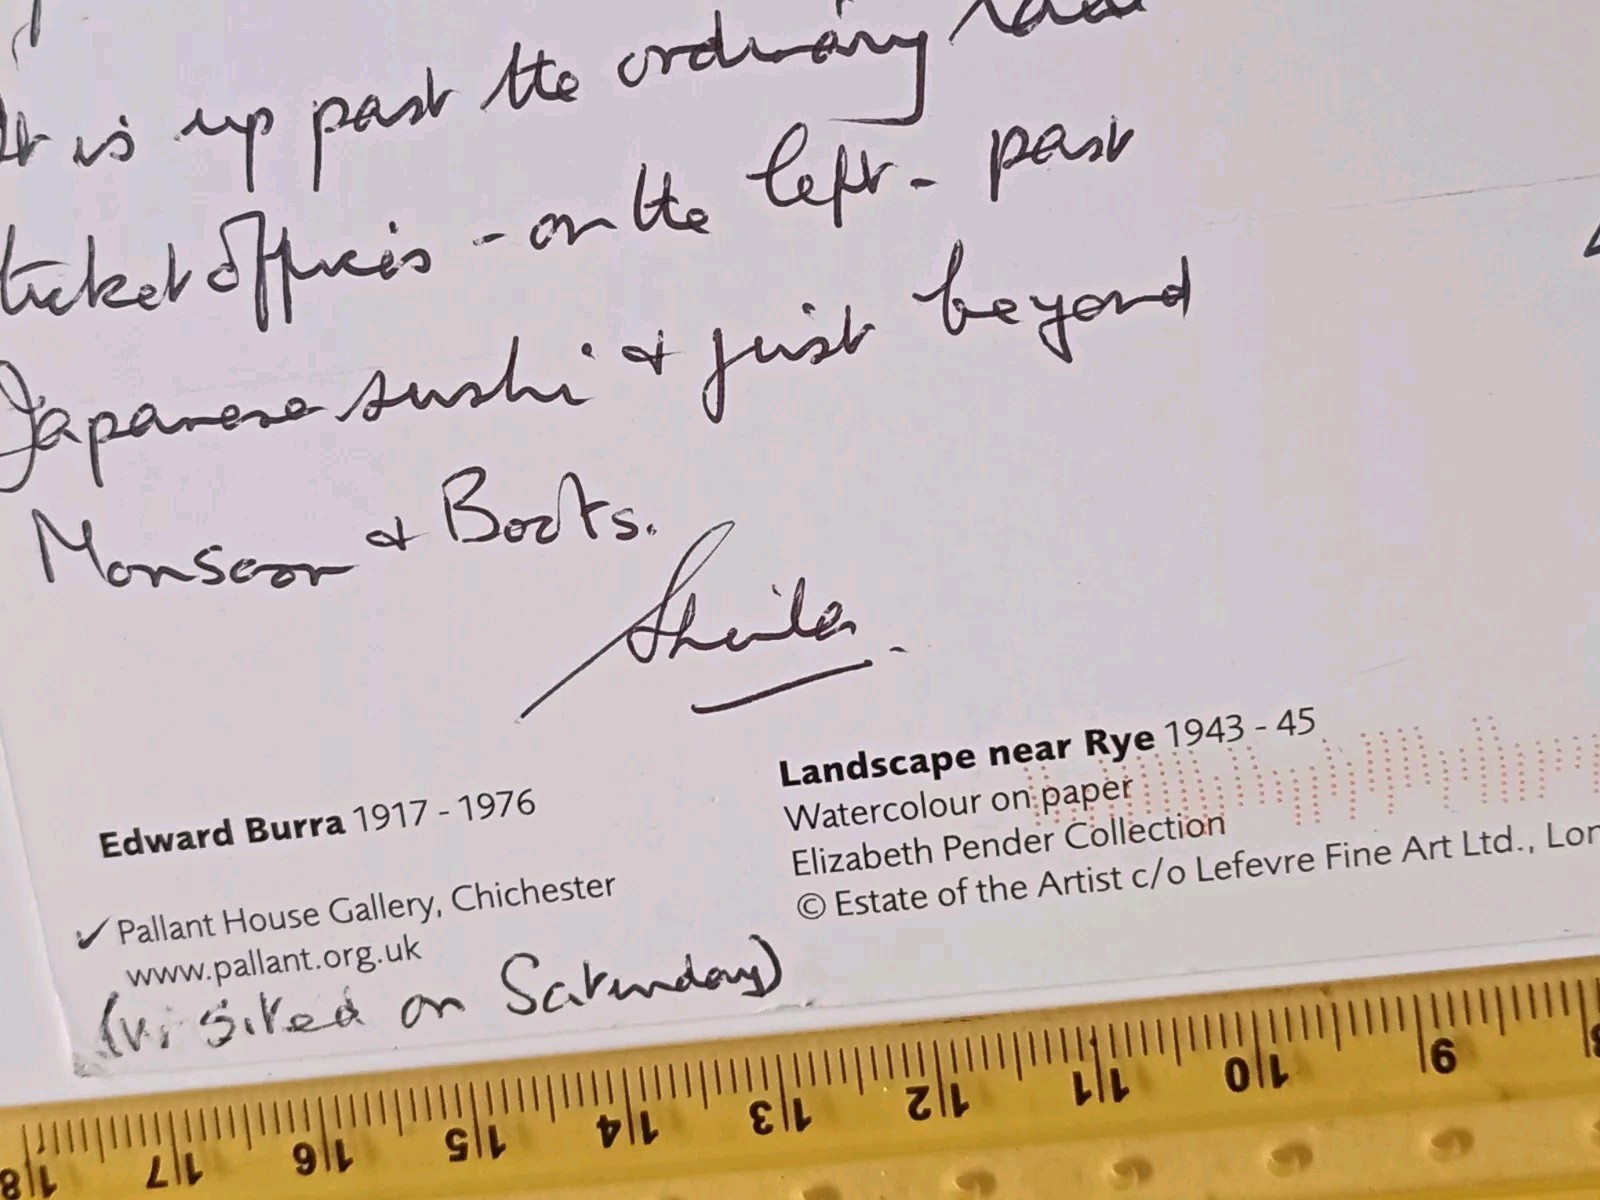 It is up past the ordinary
ticket offices - on the left - past
Japanese sushi & just beyond
Monsoon & Boots.
Sheila.
Edward Burra 1917 - 1976
✓ Pallant House Gallery, Chichester
www.pallant.org.uk
(visited on Saturday)
Landscape near Rye 1943 - 45
Watercolour on paper
Elizabeth Pender Collection
© Estate of the Artist c/o Lefevre Fine Art Ltd., Lon
18 17 16 15 14 13 12 11 10 9 8